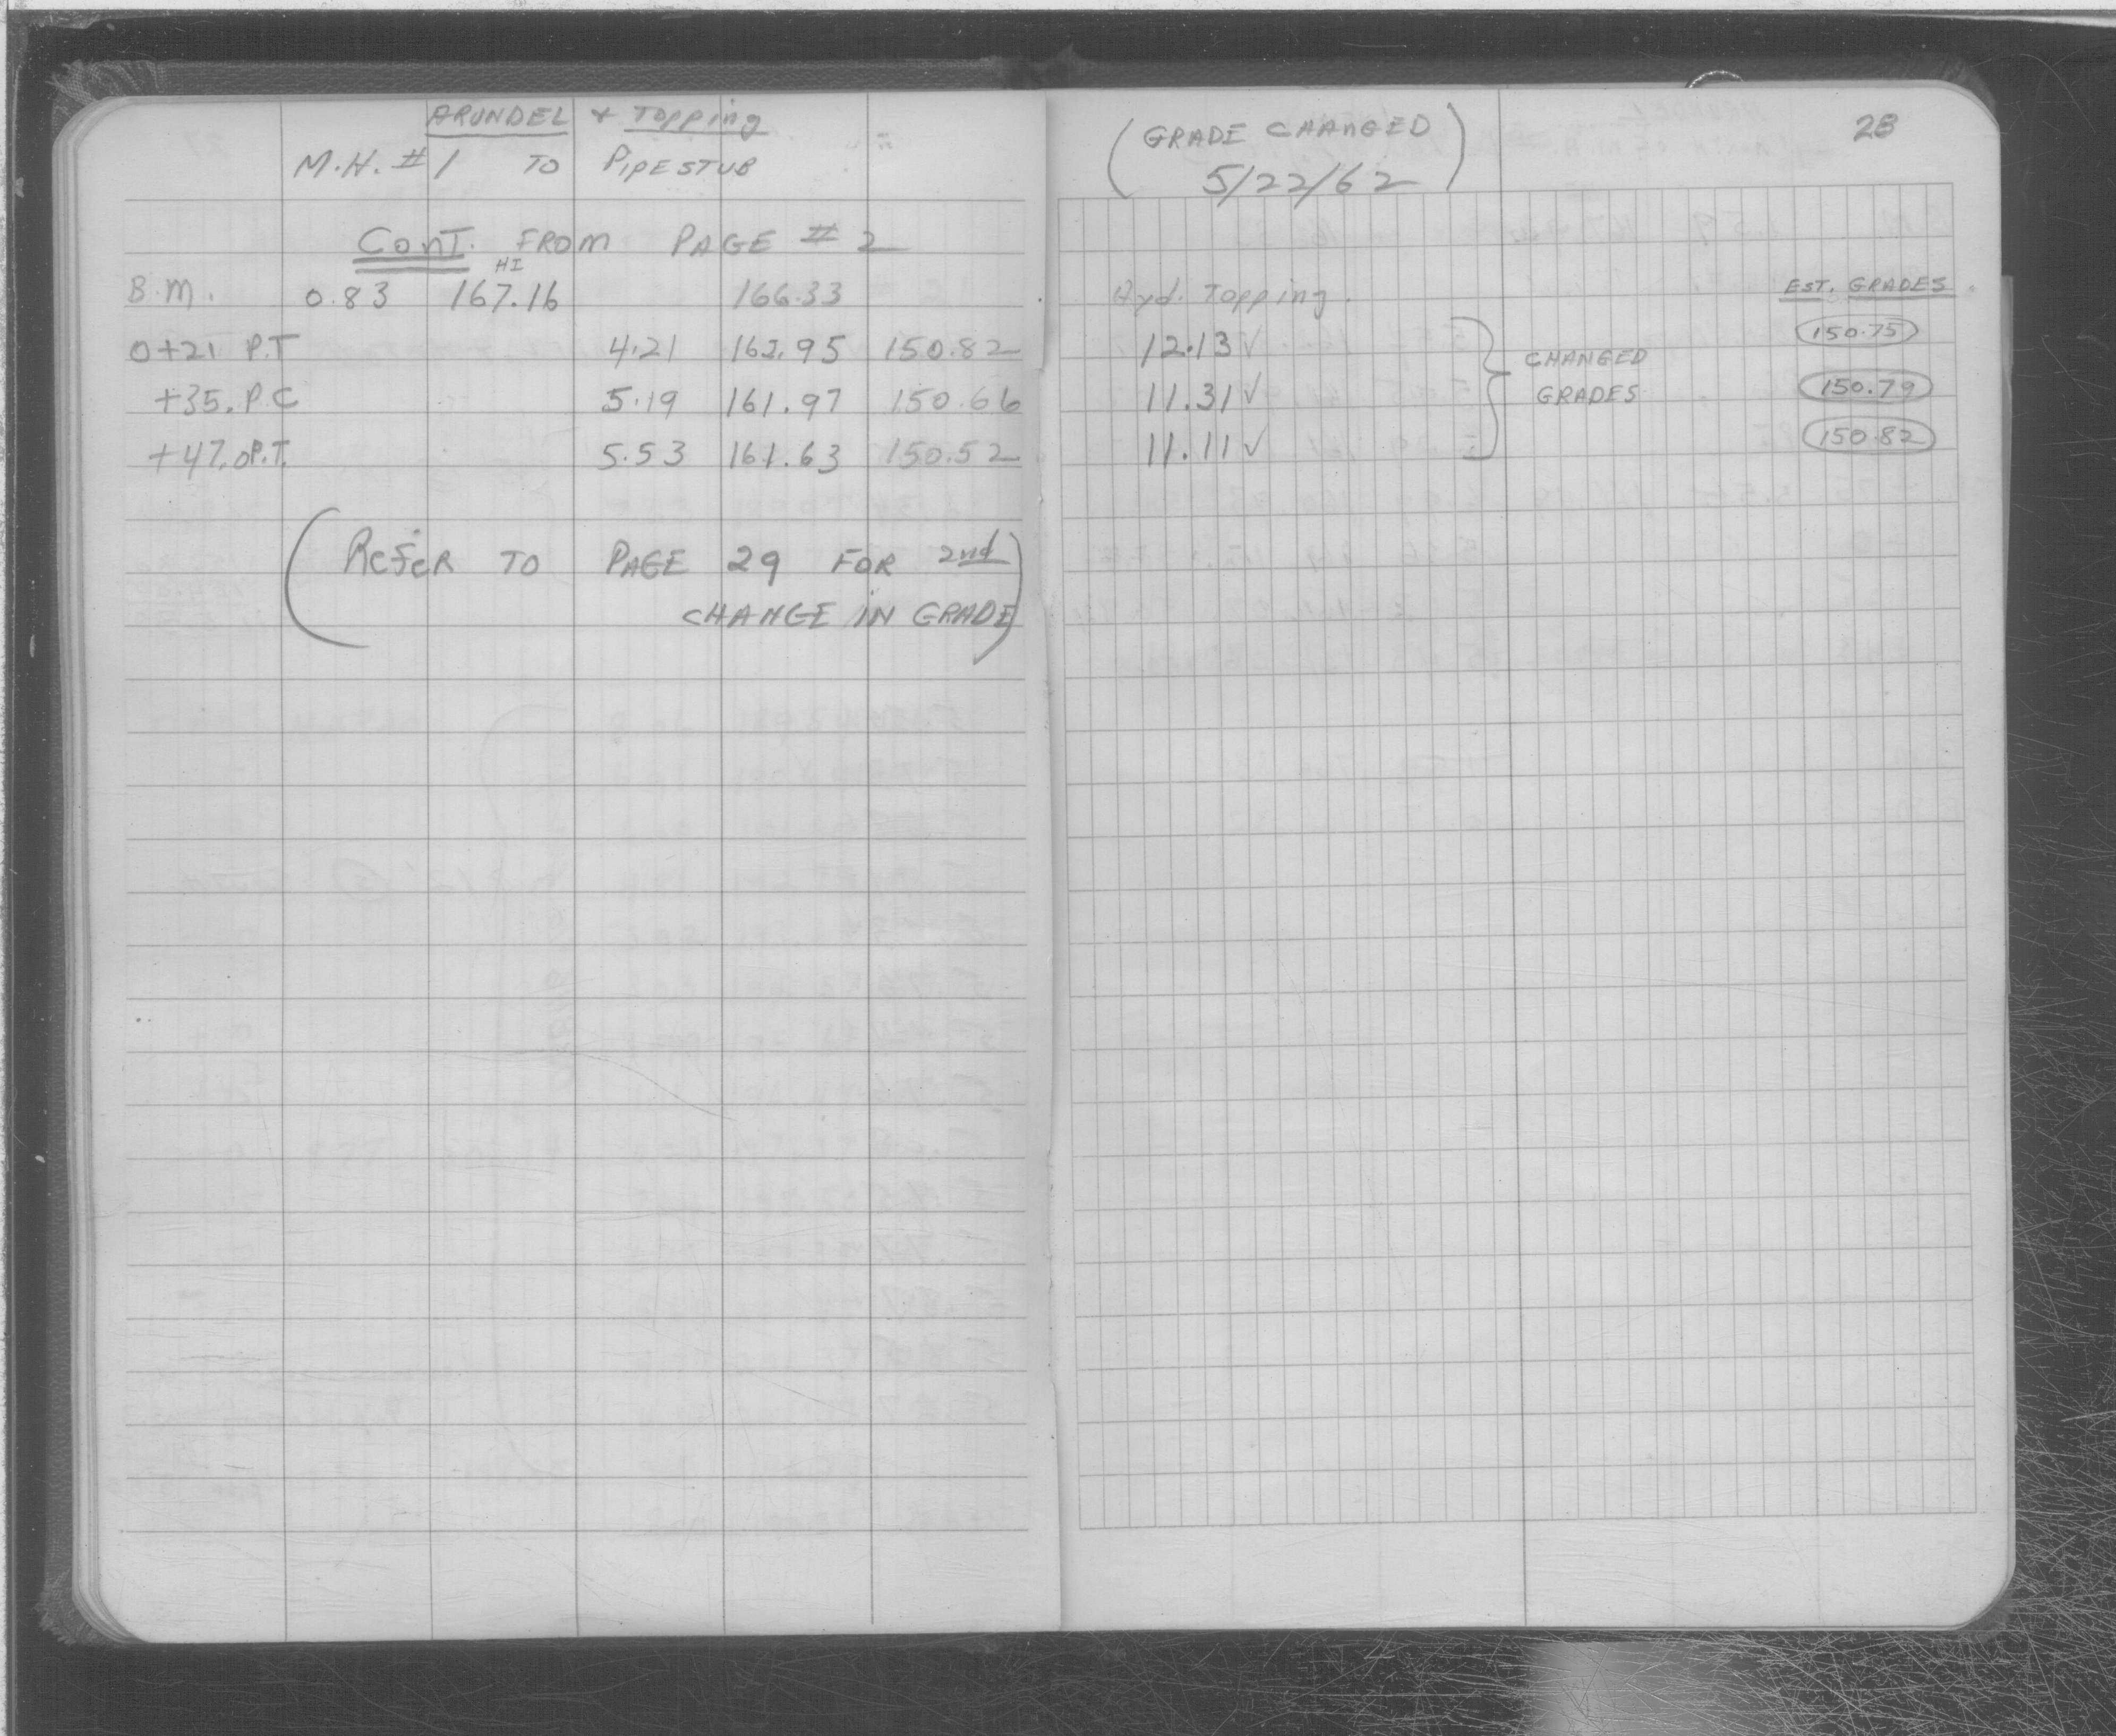 ARUNDEL + Topping
M.H. #1 TO PIPE STUB
Cont. FROM PAGE # 2
HI
B.M. 0.83 167.16 166.33
0+21 P.T 4.21 162.95 150.82
+35. P.C 5.19 161.97 150.66
+47.0 P.T. 5.53 161.63 150.52
(Refer TO PAGE 29 FOR 2nd
CHANGE IN GRADE)
(GRADE CHANGED)
5/22/62
28
Hyd. Topping.
EST. GRADES
12.13 ✓ 150.75
11.31 ✓ 150.79
11.11 ✓ 150.82
CHANGED
GRADES